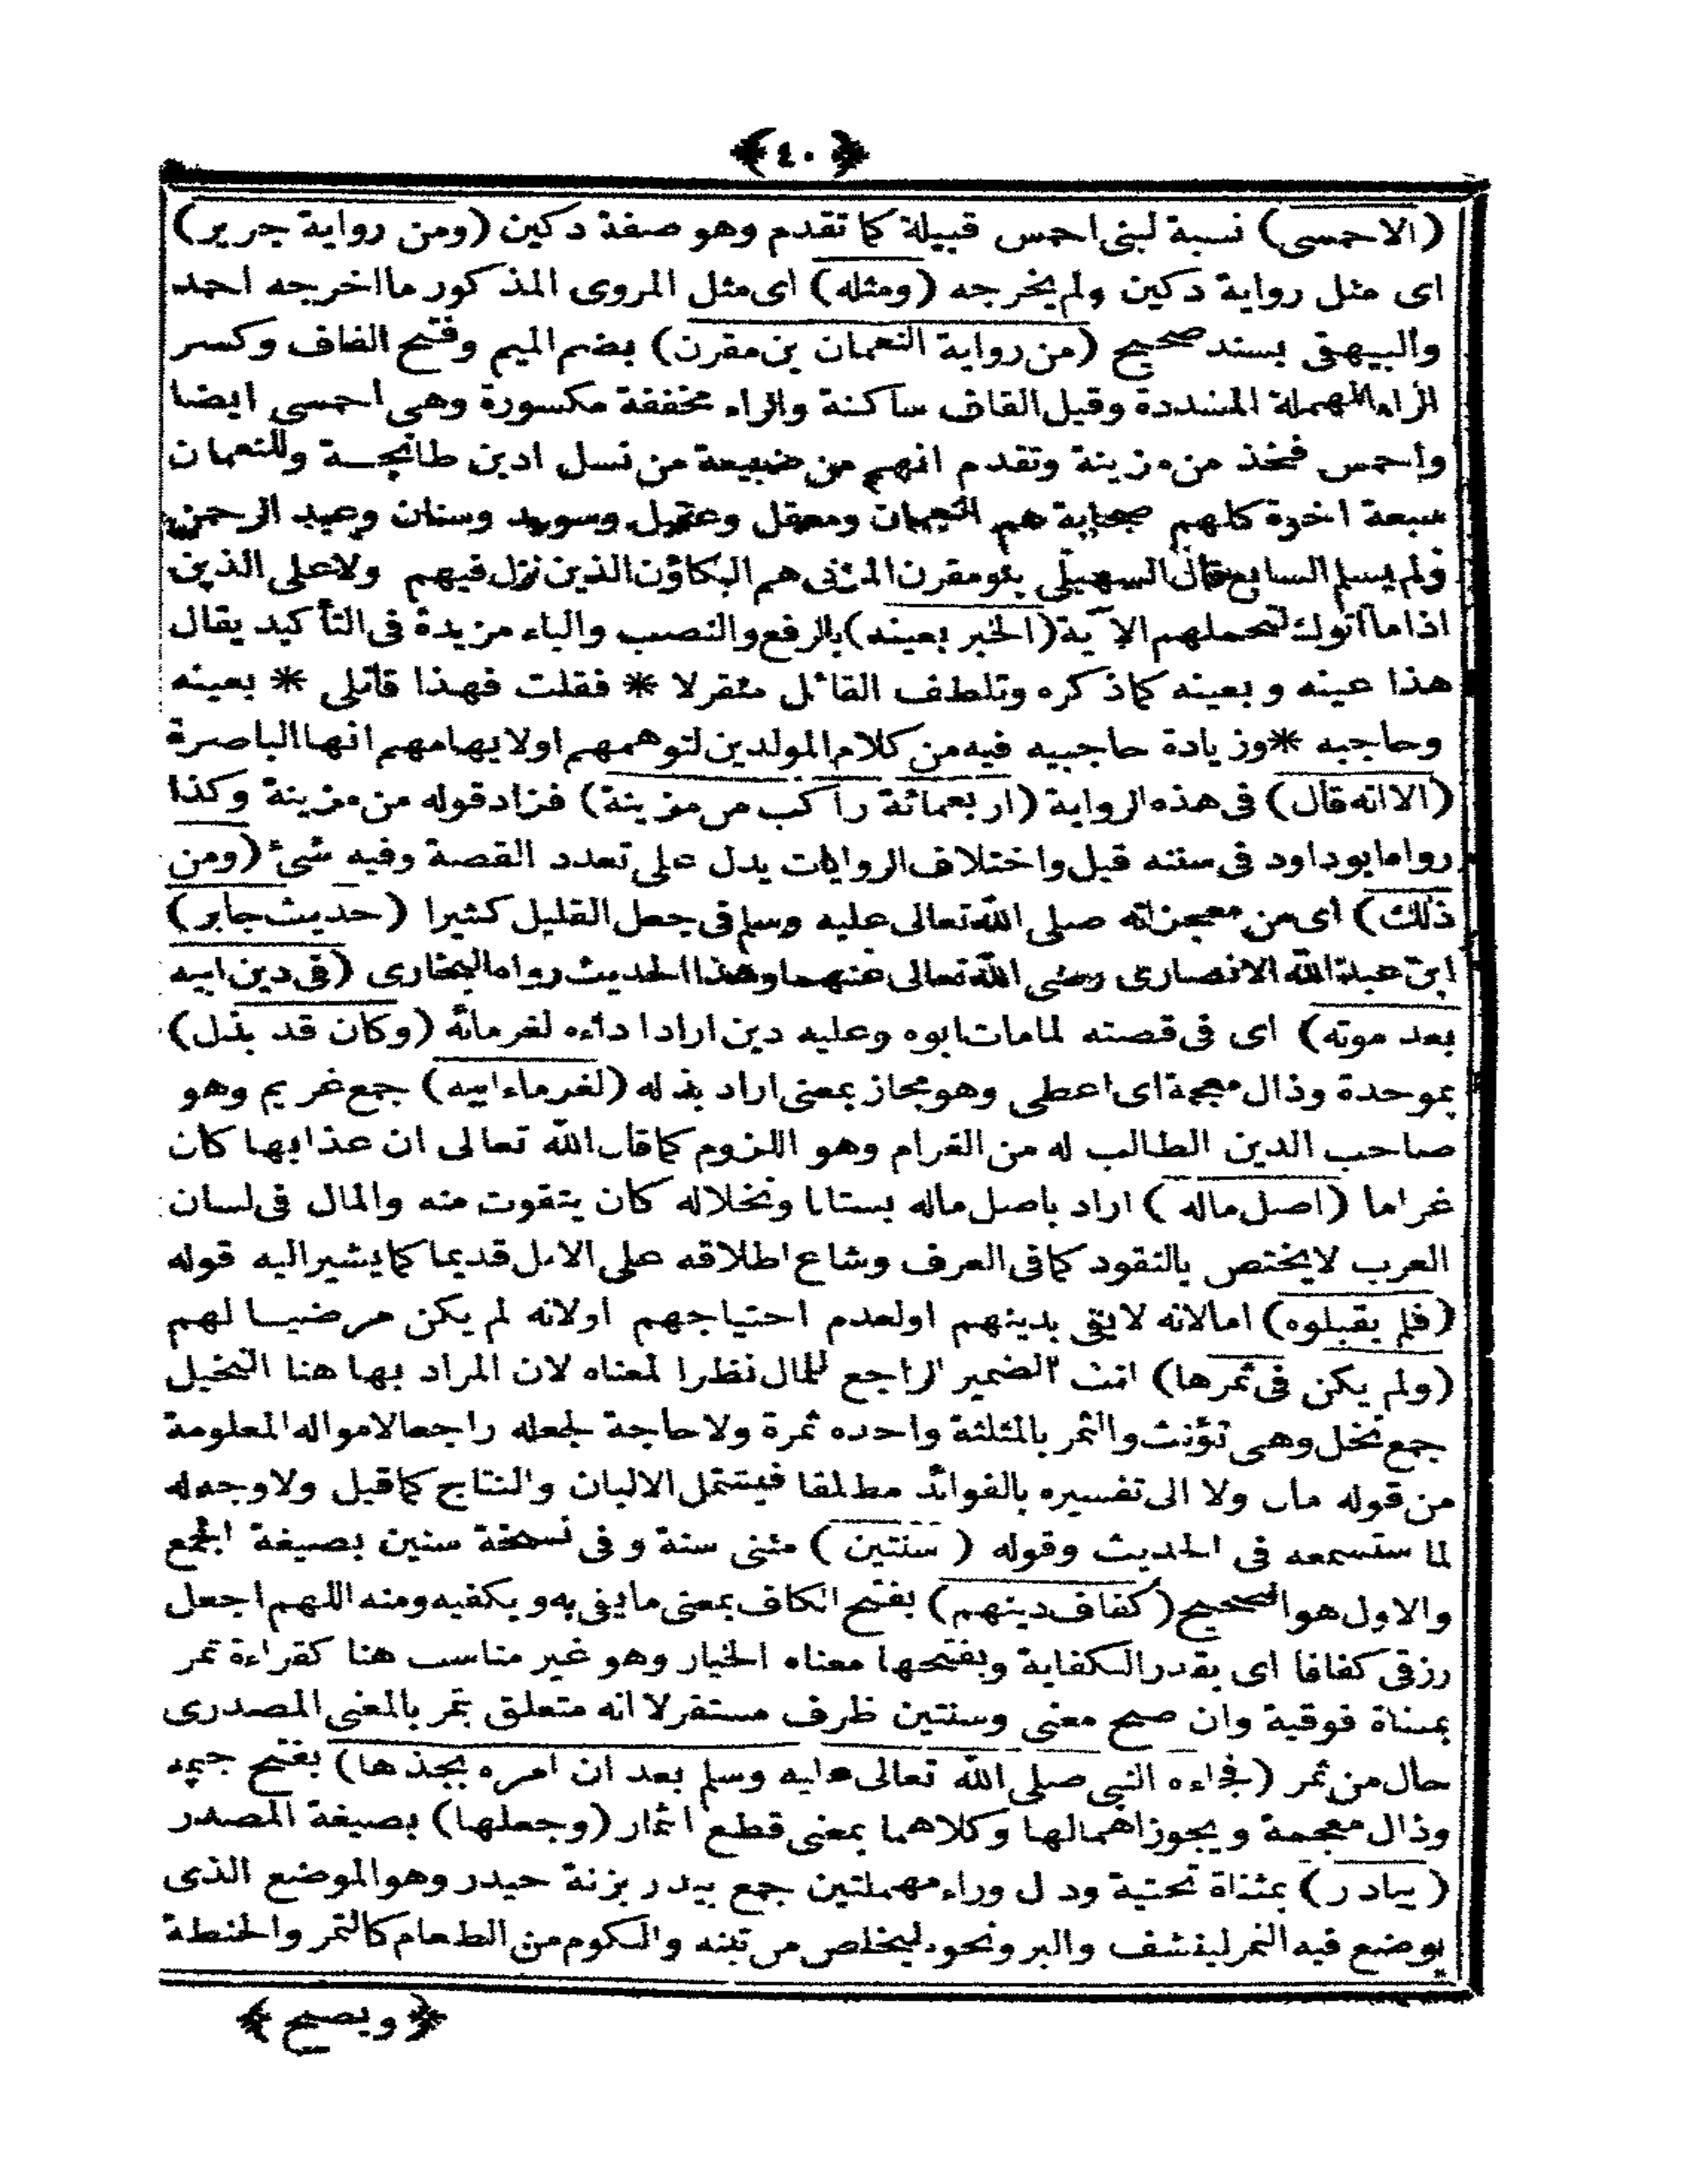 ﴿٤٠﴾
(الاحمسى) نسبة لبنى احمس قبيلة كما تقدم وهو صفة دكين (ومن رواية جرير)
اى مثل رواية دكين ولم يخرجه (ومثله) اى مثل المروى المذكور ما اخرجه احمد
والبيهقى بسند صحيح (من رواية النعمان بن مقرن) بضم الميم وفتح القاف وكسر
الراء المهملة المشددة وقيل القاف ساكنة والراء مخففة مكسورة وهى احمسى ايضا
واحمس فخذ من مزينة وتقدم انهم من ضبيعة من نسل ادبن طابخة وللنعمان
سبعة اخوة كلهم صحابة هم النعمان ومعقل وعقيل وسويد وسنان وعبد الرحمن
ولم يسلم السابع قال السهيلى بنو مقرن المزنى هم البكاؤن الذين نزل فيهم ولا على الذين
اذا ما اتوك لتحملهم الآية (الخبر بعينه) بالرفع والنصب والباء مزيدة فى التأكيد يقال
هذا عينه وبعينه كما ذكره وتلطف القائل متغزلا * فقلت فهذا قاتلى * بعينه
وحاجبه * وزيادة حاجبيه فيه من كلام المولدين لتوهمهم اولايهامهم انها الباصرة
(الا انه قال) فى هذه الرواية (اربعمائة راكب من مزينة) فزاد قوله من مزينة وكذا
رواه ابو داود فى سننه قيل واختلاف الروايات يدل على تعدد القصة وفيه شئ (ومن
ذلك) اى من معجزاته صلى الله تعالى عليه وسلم فى جعل القليل كثيرا (حديث جابر)
ابن عبد الله الانصارى رضى الله تعالى عنهما وهذا الحديث رواه البخارى (فى دين ابيه
بعد موته) اى فى قصته لما مات ابوه وعليه دين ارادا داءه لغرمائه (وكان قد بذل)
بموحدة وذال معجمة اى اعطى وهو مجاز بمعنى اراد بذله (لغرماء ابيه) جمع غريم وهو
صاحب الدين الطالب له من الغرام وهو اللزوم كما قال الله تعالى ان عذابها كان
غراما (اصل ماله) اراد باصل ماله بستانا ونخلا له كان يتقوت منه والمال فى لسان
العرب لا يختص بالنقود كما فى العرف وشاع اطلاقه على الابل قديما كما يشير اليه قوله
(فلم يقبلوه) اما لانه لا يفى بدينهم او لعدم احتياجهم او لانه لم يكن مرضيا لهم
(ولم يكن فى ثمرها) انث الضمير الراجع للمال نظرا لمعناه لان المراد بها هنا النخيل
جمع نخل وهى تؤنث والثمر بالمثلثة واحده ثمرة ولا حاجة لجعله راجعا لامواله المعلومة
من قوله مال ولا الى تفسيره بالفوائد مطلقا فيشتمل الالبان والنتاج كما قيل ولا وجه له
لما ستسمعه فى الحديث وقوله (سنتين) مثنى سنة وفى نسخة سنين بصيغة الجمع
والاول هو الصحيح (كفاف دينهم) بفتح الكاف بمعنى ما يفى به ويكفيه ومنه اللهم اجعل
رزقى كفافا اى بقدر الكفاية وبفتحها معناه الخيار وهو غير مناسب هنا كقراءة تمر
بمثناة فوقية وان صح معنى وسنتين ظرف مستقر لا انه متعلق بثمر بالمعنى المصدرى
حال من ثمر (فجاءه النبى صلى الله تعالى عليه وسلم بعد ان امره بجذها) بفتح جيم
وذال معجمة ويجوز اهمالها وكلاهما بمعنى قطع اثمار (وجعلها) بصيغة المصدر
(بيادر) بمثناة تحتية ودل وراء مهملتين جمع بيدر بزنة حيدر وهو الموضع الذى
يوضع فيه التمر لينشف والبر ونحوه ليخلص من تبنه والكوم من الطعام كالتمر والحنطة
﴿ويصح﴾